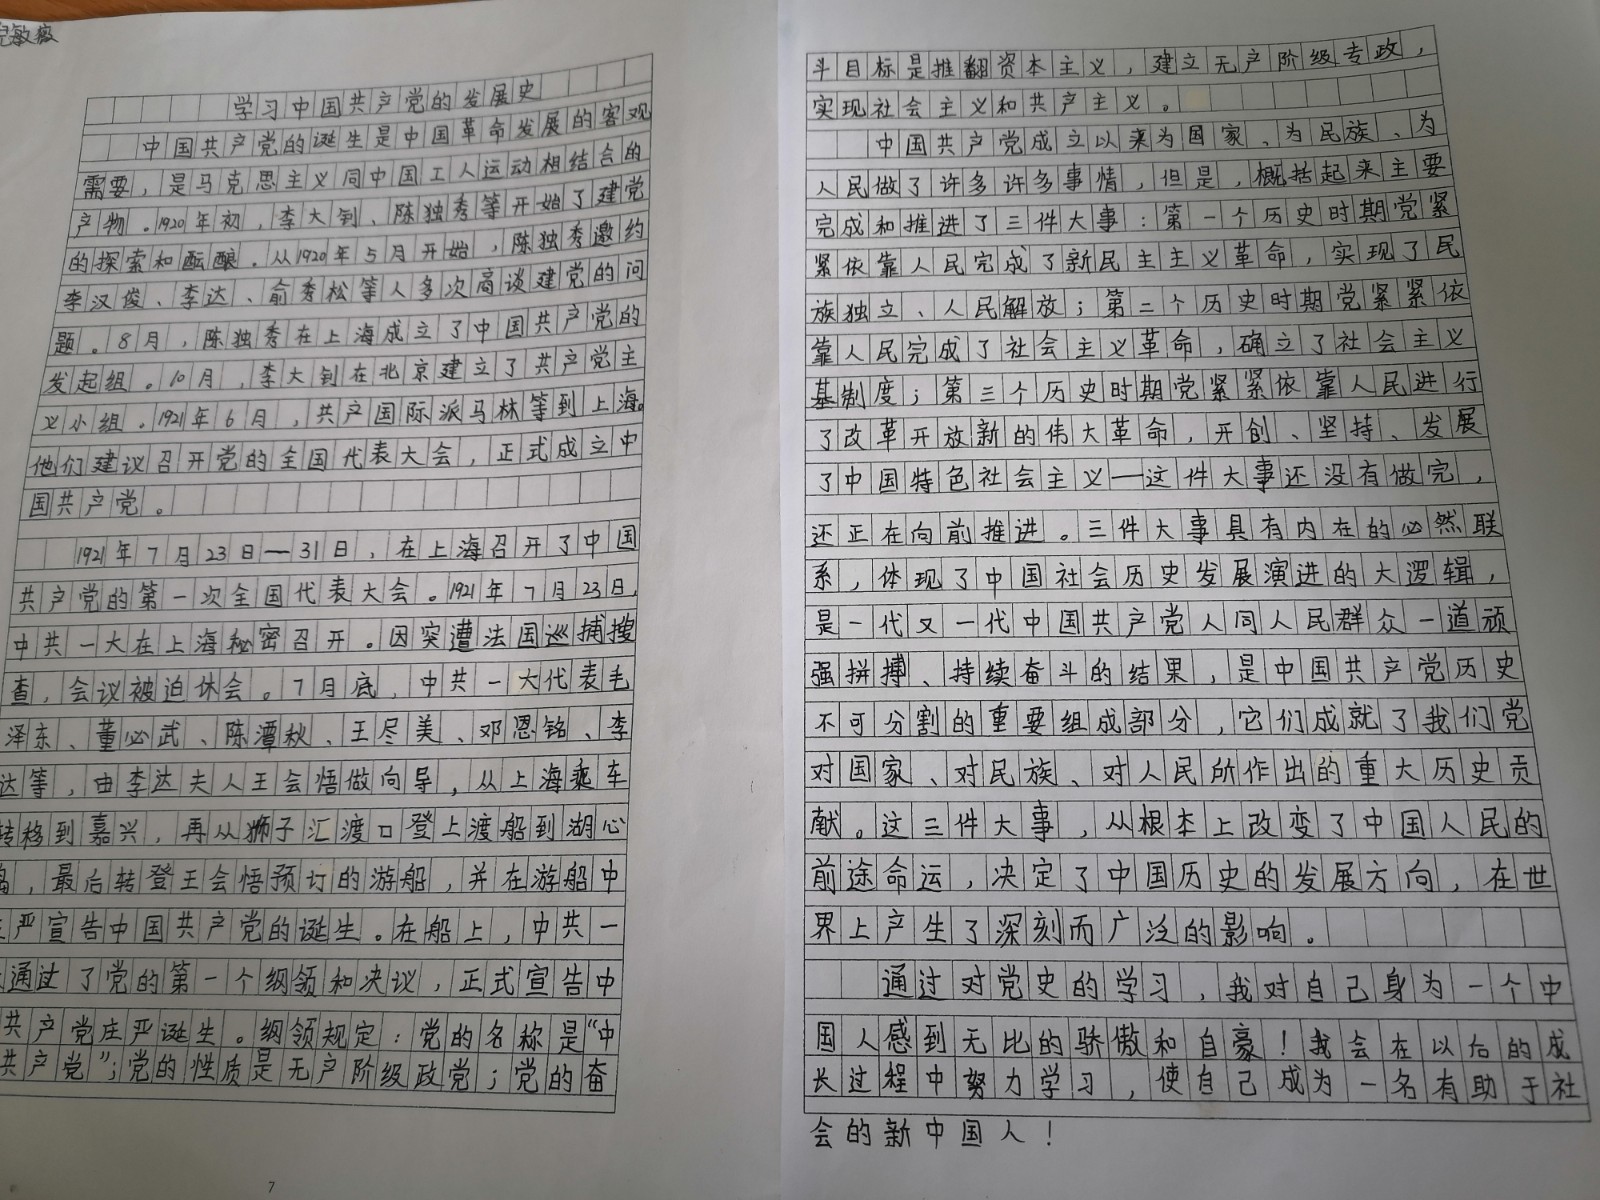 倪敏薇
学习中国共产党的发展史
中国共产党的诞生是中国革命发展的客观
需要，是马克思主义同中国工人运动相结合的
产物。1920年初，李大钊、陈独秀等开始了建党
的探索和酝酿。从1920年5月开始，陈独秀邀约
李汉俊、李达、俞秀松等人多次商谈建党的问
题。8月，陈独秀在上海成立了中国共产党的
发起组。10月，李大钊在北京建立了共产党主
义小组。1921年6月，共产国际派马林等到上海。
他们建议召开党的全国代表大会，正式成立中
国共产党。
1921年7月23日—31日，在上海召开了中国
共产党的第一次全国代表大会。1921年7月23日，
中共一大在上海秘密召开。因突遭法国巡捕搜
查，会议被迫休会。7月底，中共一大代表毛
泽东、董必武、陈潭秋、王尽美、邓恩铭、李
达等，由李达夫人王会悟做向导，从上海乘车
转移到嘉兴，再从狮子汇渡口登上渡船到湖心
岛，最后转登王会悟预订的游船，并在游船中
庄严宣告中国共产党的诞生。在船上，中共一
通过了党的第一个纲领和决议，正式宣告中
共产党庄严诞生。纲领规定：党的名称是“中
共产党”；党的性质是无产阶级政党；党的奋
7
斗目标是推翻资本主义，建立无产阶级专政，
实现社会主义和共产主义。
中国共产党成立以来为国家、为民族、为
人民做了许多许多事情，但是，概括起来主要
完成和推进了三件大事：第一个历史时期党紧
紧依靠人民完成了新民主主义革命，实现了民
族独立、人民解放；第二个历史时期党紧紧依
靠人民完成了社会主义革命，确立了社会主义
基制度；第三个历史时期党紧紧依靠人民进行
了改革开放新的伟大革命，开创、坚持、发展
了中国特色社会主义—这件大事还没有做完，
还正在向前推进。三件大事具有内在的必然联
系，体现了中国社会历史发展演进的大逻辑，
是一代又一代中国共产党人同人民群众一道顽
强拼搏、持续奋斗的结果，是中国共产党历史
不可分割的重要组成部分，它们成就了我们党
对国家、对民族、对人民所作出的重大历史贡
献。这三件大事，从根本上改变了中国人民的
前途命运，决定了中国历史的发展方向，在世
界上产生了深刻而广泛的影响。
通过对党史的学习，我对自己身为一个中
国人感到无比的骄傲和自豪！我会在以后的成
长过程中努力学习，使自己成为一名有助于社
会的新中国人！